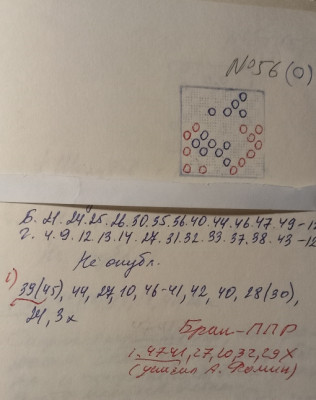 №56 (0)
Б. 21. 24. 25. 26. 30. 35. 36. 40. 44. 46. 47. 49 - 12
Ч. 4. 9. 12. 13. 14. 27. 31. 32. 33. 37. 38. 43 - 12
Не опубл.
39(45), 44, 24, 10, 46-41, 42, 40, 28(30),
24, 3x
Брак-ППР
1. 4741, 27, 20, 32, 29X
(указал А. Фомин)